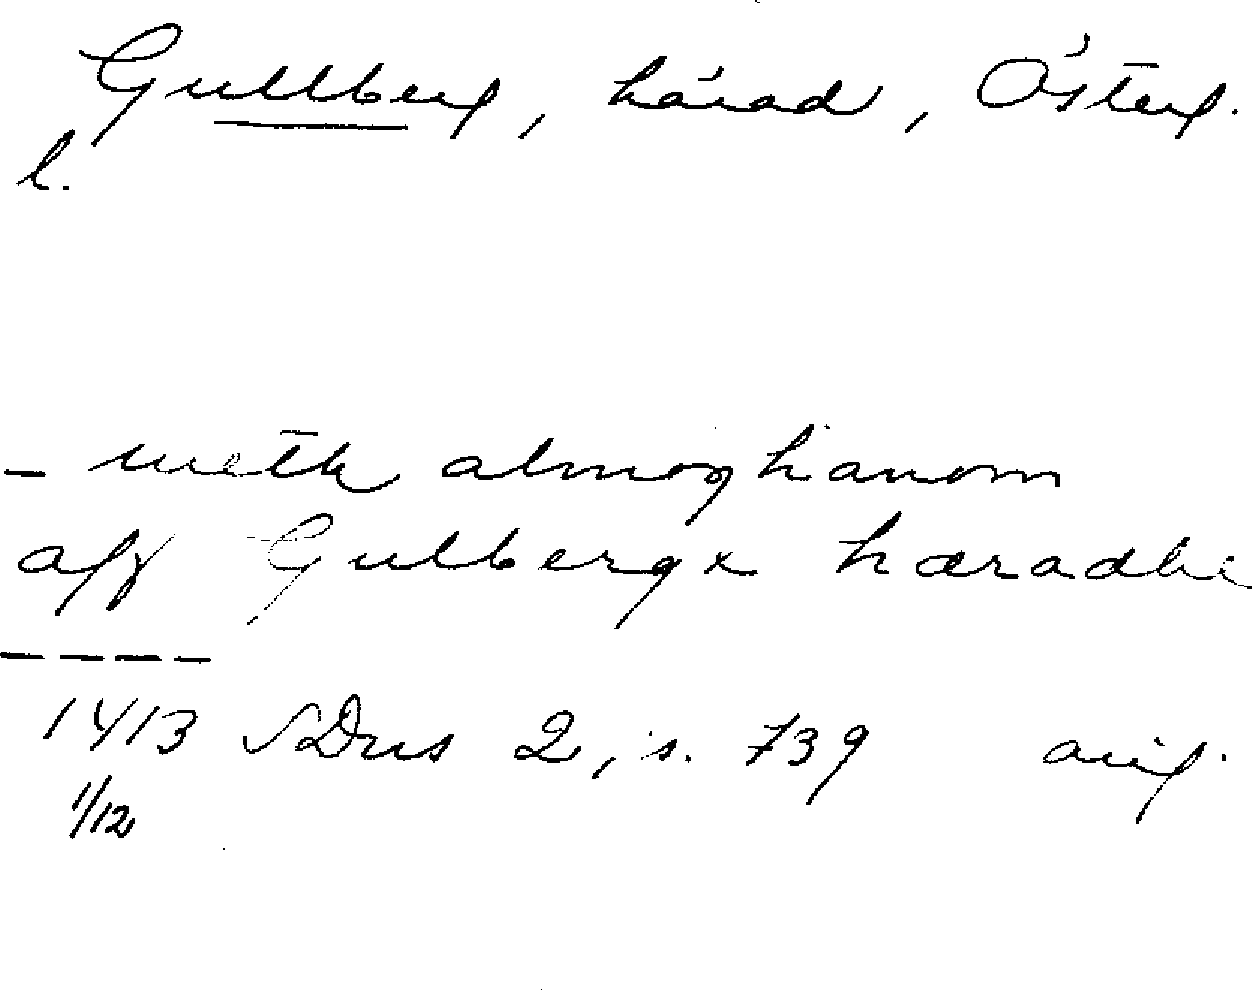 Gullberg, härad, Österg.
l.
- meth almoghanom
aff Gulbergx hæradhe
----
1413 SDns 2, s. 739 orig.
1/12